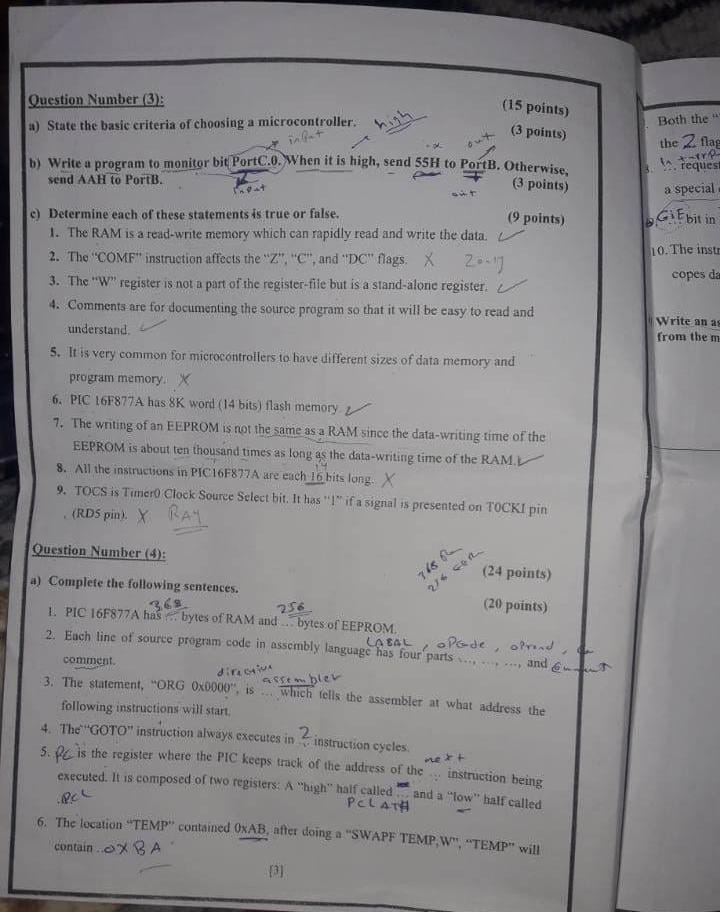 Question Number (3): (15 points)
a) State the basic criteria of choosing a microcontroller. high (3 points)
input out
b) Write a program to monitor bit PortC.0. When it is high, send 55H to PortB. Otherwise,
send AAH to PortB. input out (3 points)
c) Determine each of these statements is true or false. (9 points)
1. The RAM is a read-write memory which can rapidly read and write the data. ✓
2. The "COMF" instruction affects the "Z", "C", and "DC" flags. X Z only
3. The "W" register is not a part of the register-file but is a stand-alone register. ✓
4. Comments are for documenting the source program so that it will be easy to read and
understand. ✓
5. It is very common for microcontrollers to have different sizes of data memory and
program memory. X
6. PIC 16F877A has 8K word (14 bits) flash memory. ✓
7. The writing of an EEPROM is not the same as a RAM since the data-writing time of the
EEPROM is about ten thousand times as long as the data-writing time of the RAM. ✓
14
8. All the instructions in PIC16F877A are each 16 bits long. X
9. TOCS is Timer0 Clock Source Select bit. It has "1" if a signal is presented on TOCKI pin
(RD5 pin). X RA4
Question Number (4): (24 points)
368
a) Complete the following sentences. (20 points)
368 256
1. PIC 16F877A has ... bytes of RAM and ... bytes of EEPROM.
LABAL, opcode, oprand,
2. Each line of source program code in assembly language has four parts ..., ..., ..., and comment
comment.
directive
assembler
3. The statement, "ORG 0x0000", is ... which tells the assembler at what address the
following instructions will start.
4. The "GOTO" instruction always executes in 2 instruction cycles.
next
5. PC is the register where the PIC keeps track of the address of the ... instruction being
executed. It is composed of two registers: A "high" half called ... and a "low" half called
PCL PCLATH
6. The location "TEMP" contained 0xAB, after doing a "SWAPF TEMP,W", "TEMP" will
contain ..0XBA
[3]
Both the "
the Z flag
request
a special
GIE bit in
10. The instr
copes da
Write an as
from the m